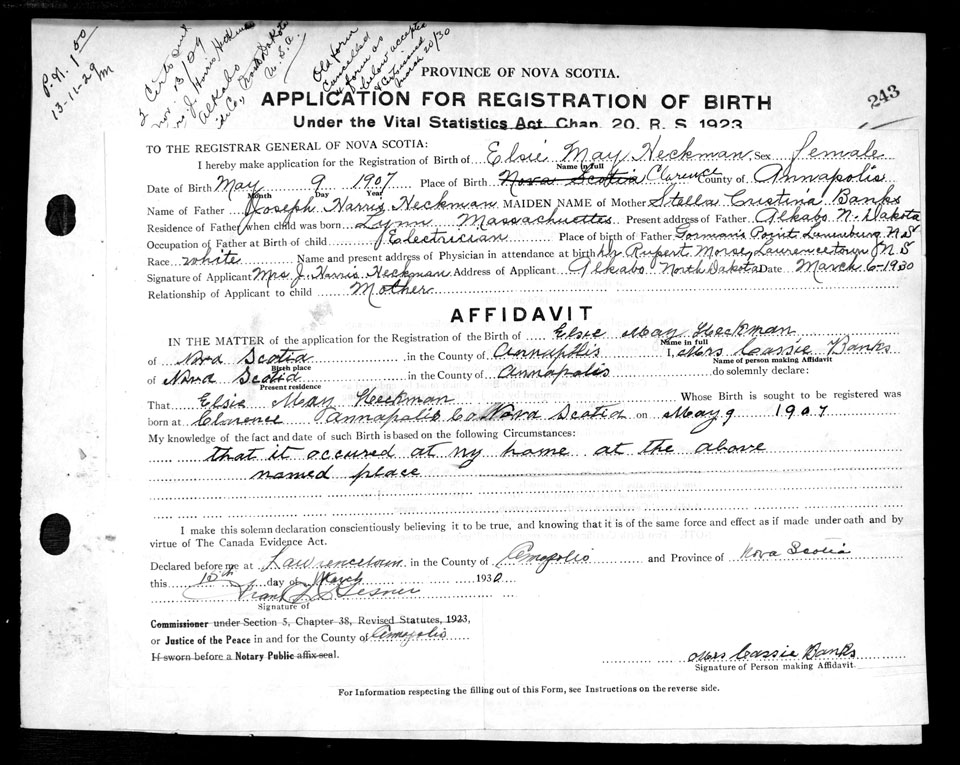 P.N. 1 50
13-11-29 m
2 Certs sent
Nov. 13/29
J. Harris Heckman
Alkabo
Co., North Dakota
U.S.A.
Old form
cancelled
form as
below accepted
March 20/30
243
PROVINCE OF NOVA SCOTIA.
APPLICATION FOR REGISTRATION OF BIRTH
Under the Vital Statistics Act, Chap. 20, R. S. 1923
TO THE REGISTRAR GENERAL OF NOVA SCOTIA:
I hereby make application for the Registration of Birth of Elsie May Heckman Sex female
Name in full
Date of Birth May 9 1907 Place of Birth Nova Scotia Clarence County of Annapolis
Month Day Year
Name of Father Joseph Harris Heckman MAIDEN NAME of Mother Stella Cristina Banks
Residence of Father when child was born Lynn Massachuettes Present address of Father Alkabo N-Dakota
Occupation of Father at Birth of child Electrician Place of birth of Father Gorman's Point Lunenburg N S
Race white Name and present address of Physician in attendance at birth Rupert Morse, Lawrencetown N S
Signature of Applicant Mrs J. Harris Heckman Address of Applicant Alkabo North Dakota Date March 6-1930
Relationship of Applicant to child Mother
AFFIDAVIT
IN THE MATTER of the application for the Registration of the Birth of Elsie May Heckman
Name in full
of Nova Scotia in the County of Annapolis I, Mrs Cassie Banks
Birth place Name of person making Affidavit
of Nova Scotia in the County of Annapolis do solemnly declare:
Present residence
That Elsie May Heckman Whose Birth is sought to be registered was
born at Clarence Annapolis Co Nova Scotia on May 9 1907
My knowledge of the fact and date of such Birth is based on the following Circumstances:
that it occured at my home at the above
named place
I make this solemn declaration conscientiously believing it to be true, and knowing that it is of the same force and effect as if made under oath and by
virtue of The Canada Evidence Act.
Declared before me at Lawrencetown in the County of Annapolis and Province of Nova Scotia
this 15th day of March 1930
Signature of
Commissioner under Section 5, Chapter 38, Revised Statutes, 1923,
or Justice of the Peace in and for the County of Annapolis
If sworn before a Notary Public affix seal.
Mrs Cassie Banks
Signature of Person making Affidavit.
For Information respecting the filling out of this Form, see Instructions on the reverse side.